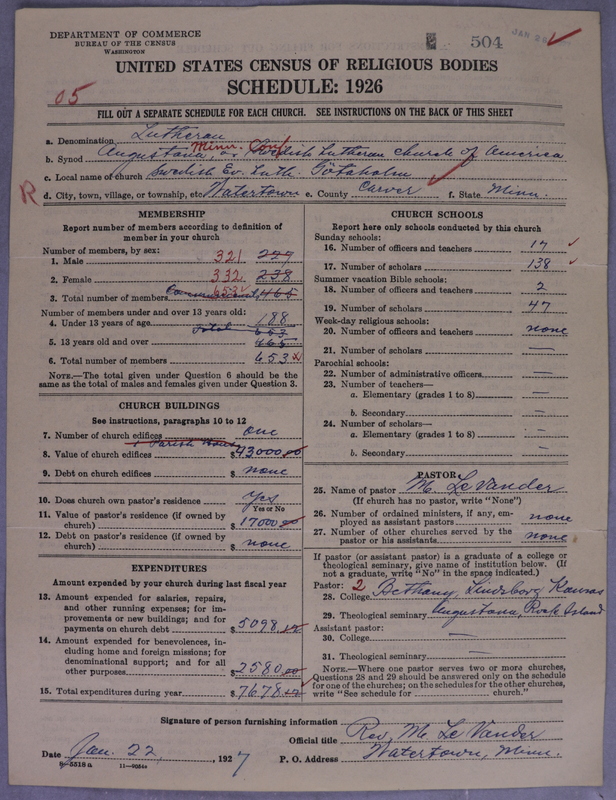 DEPARTMENT OF COMMERCE
BUREAU OF THE CENSUS
WASHINGTON
504
JAN 26
UNITED STATES CENSUS OF RELIGIOUS BODIES
SCHEDULE: 1926
05
FILL OUT A SEPARATE SCHEDULE FOR EACH CHURCH. SEE INSTRUCTIONS ON THE BACK OF THIS SHEET
a. Denomination Lutheran
Minn. Conf
b. Synod Augustana, or Swedish Lutheran Church of America
c. Local name of church Swedish Ev. Luth. Götaholm
R d. City, town, village, or township, etc Watertown e. County Carver f. State Minn.
MEMBERSHIP
Report number of members according to definition of member in your church
Number of members, by sex:
1. Male 321 227
2. Female 332 238
3. Total number of members 653 465
Number of members under and over 13 years old:
4. Under 13 years of age 188
Total 653
5. 13 years old and over 465
6. Total number of members 653
NOTE.—The total given under Question 6 should be the same as the total of males and females given under Question 3.
CHURCH BUILDINGS
See instructions, paragraphs 10 to 12
7. Number of church edifices one
1 Parish House
8. Value of church edifices $43000.00
9. Debt on church edifices $ none
10. Does church own pastor's residence Yes
Yes or No
11. Value of pastor's residence (if owned by church) $17000.00
12. Debt on pastor's residence (if owned by church) $ none
EXPENDITURES
Amount expended by your church during last fiscal year
13. Amount expended for salaries, repairs, and other running expenses; for improvements or new buildings; and for payments on church debt $5098.12
14. Amount expended for benevolences, including home and foreign missions; for denominational support; and for all other purposes $2580.00
15. Total expenditures during year $7678.12
CHURCH SCHOOLS
Report here only schools conducted by this church
Sunday schools:
16. Number of officers and teachers 17
17. Number of scholars 138
Summer vacation Bible schools:
18. Number of officers and teachers 2
19. Number of scholars 47
Week-day religious schools:
20. Number of officers and teachers none
21. Number of scholars —
Parochial schools:
22. Number of administrative officers —
23. Number of teachers—
a. Elementary (grades 1 to 8) —
b. Secondary —
24. Number of scholars—
a. Elementary (grades 1 to 8) —
b. Secondary —
PASTOR
25. Name of pastor M. Le Vander
(If church has no pastor, write "None")
26. Number of ordained ministers, if any, employed as assistant pastors none
27. Number of other churches served by the pastor or his assistants none
If pastor (or assistant pastor) is a graduate of a college or theological seminary, give name of institution below. (If not a graduate, write "No" in the space indicated.)
Pastor: 2
28. College Bethany, Lindsborg Kansas
29. Theological seminary Augustana, Rock Island
Assistant pastor:
30. College —
31. Theological seminary —
NOTE.—Where one pastor serves two or more churches, Questions 28 and 29 should be answered only on the schedule for one of the churches; on the schedules for the other churches, write "See schedule for church."
Signature of person furnishing information
Official title Rev. M. Le Vander
Date Jan. 22, 1927 P. O. Address Watertown, Minn.
8-5518a 11-9054a